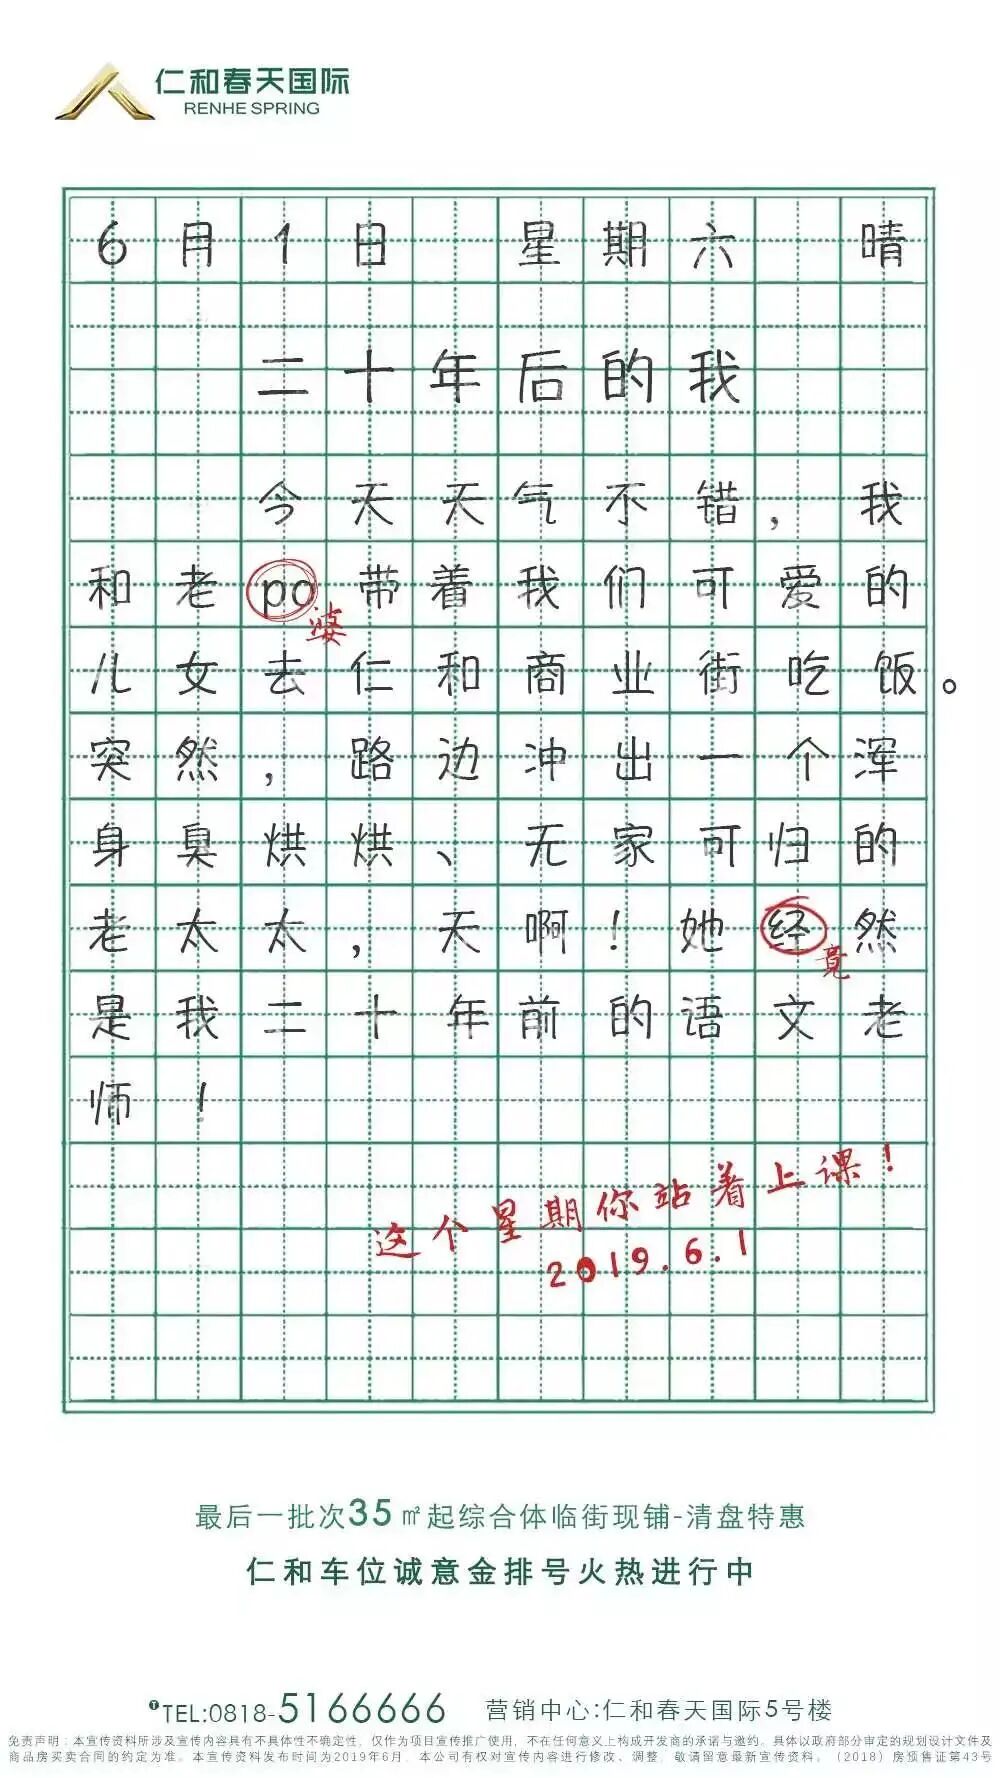 仁和春天国际
RENHE SPRING
6月1日 星期六 晴
二十年后的我
今天天气不错，我
和老po带着我们可爱的
婆
儿女去仁和商业街吃饭。
突然，路边冲出一个浑
身臭烘烘、无家可归的
老太太，天啊！她经然
竟
是我二十年前的语文老
师！
这个星期你站着上课！
2019.6.1
最后一批次35㎡起综合体临街现铺-清盘特惠
仁和车位诚意金排号火热进行中
TEL:0818-5166666 营销中心:仁和春天国际5号楼
免责声明：本宣传资料所涉及宣传内容具有不具体性不确定性，仅作为项目宣传推广使用，不在任何意义上构成开发商的承诺与邀约。具体以政府部分审定的规划设计文件及
商品房买卖合同的约定为准。本宣传资料发布时间为2019年6月，本公司有权对宣传内容进行修改、调整，敬请留意最新宣传资料。（2018）房预售证第43号